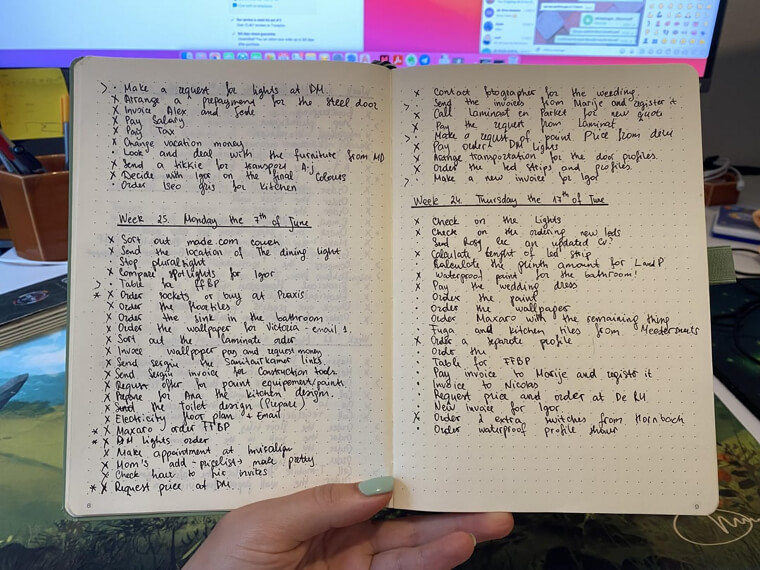 > · Make a request for lights at DM.
x Arrange a prepayment for the steel door
x Invoice Alex and
x Pay Salary
x Pay Tax
x Change vacation money
· Look and deal with the furniture from MD
x Send a tikkie for transport A.j
x Decide with Igor on the final colours
· Order gris for kitchen
Week 25. Monday the 7th of June
x Sort out made.com
x Send the location of The dining light
x Stop pluralsight
x Compare spotlights for Igor
> · Table for FFBP
* x Order sockets or buy at Praxis
x Order the floortiles
x Order the sink in the bathroom
x Order the wallpaper for Victoria - email 1.
x Sort out the laminate order
x Invoice wallpaper pay and request money
x Send sergiu the Sanitairkamer links
x Send Sergiu invoice for Construction tools.
x Request offer for paint equipement/paints.
x Prepare for Ana the kitchen designs.
x Send the Toilet design (Prepare)
x Electricity floor plan + Email
* x Maxaro order FFBP
* x DM lights order
x Make appointment at Invisalign
x Mom's add - pricelist → make pretty
x Check hair to fix invites
* x Request price at DM.
8
x Contact fotographer for the weeding.
> Send the invoices from Marije and register it
x Call Laminaat en Parket for new quote
x Pay the request from Laminat
x Make a request of paint Price from
x Pay order DM Lights
x Arrange transportation for the door profiles.
x Order the led strips and profiles.
> · Make a new invoice for Igor
Week 24. Thursday the 17th of June
x Check on the Lights
x Check on the ordering new leds
Send Rosy an updated CV?
x Calculate lenght of led strip
Recalculate the plinth amount for LandP
x Waterproof paint for the bathroom!
x Pay the wedding dress
· Order the paint
· Order the wallpaper
Order Maxaro with the remaining thing
Fuga and kitchen tiles from
x Order a separate profile
· Order the
· Table for FFBP
· Pay invoice to Marije and register it
· Invoice to Nicolas
· Request price and order at De
· New invoice for Igor
x Order 2 extra switches from Hornbach
· Order waterproof profile shower
9